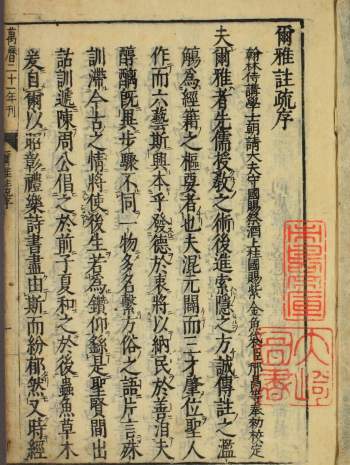 爾雅註疏序
翰林侍講學士朝請大夫守國子祭酒上柱國賜紫金魚袋臣邢昺等奉勅校定
夫爾雅者先儒授敎之術後進索隱之方誠傳註之濫
觴爲經籍之樞要者也夫混元闢而三才肇位聖人
作而六藝斯興本乎發德於衷將以納民於善洎夫
醇醨旣異步驟不同一物多名繫方俗之語片言殊
訓滯今古之情將使後生若爲鑽仰繇是聖賢間出
詁訓遞陳周公倡之於前子夏和之於後蟲魚草木
爰自爾以昭彰禮樂詩書盡由斯而紛郁然又時經
萬曆二十一年刊